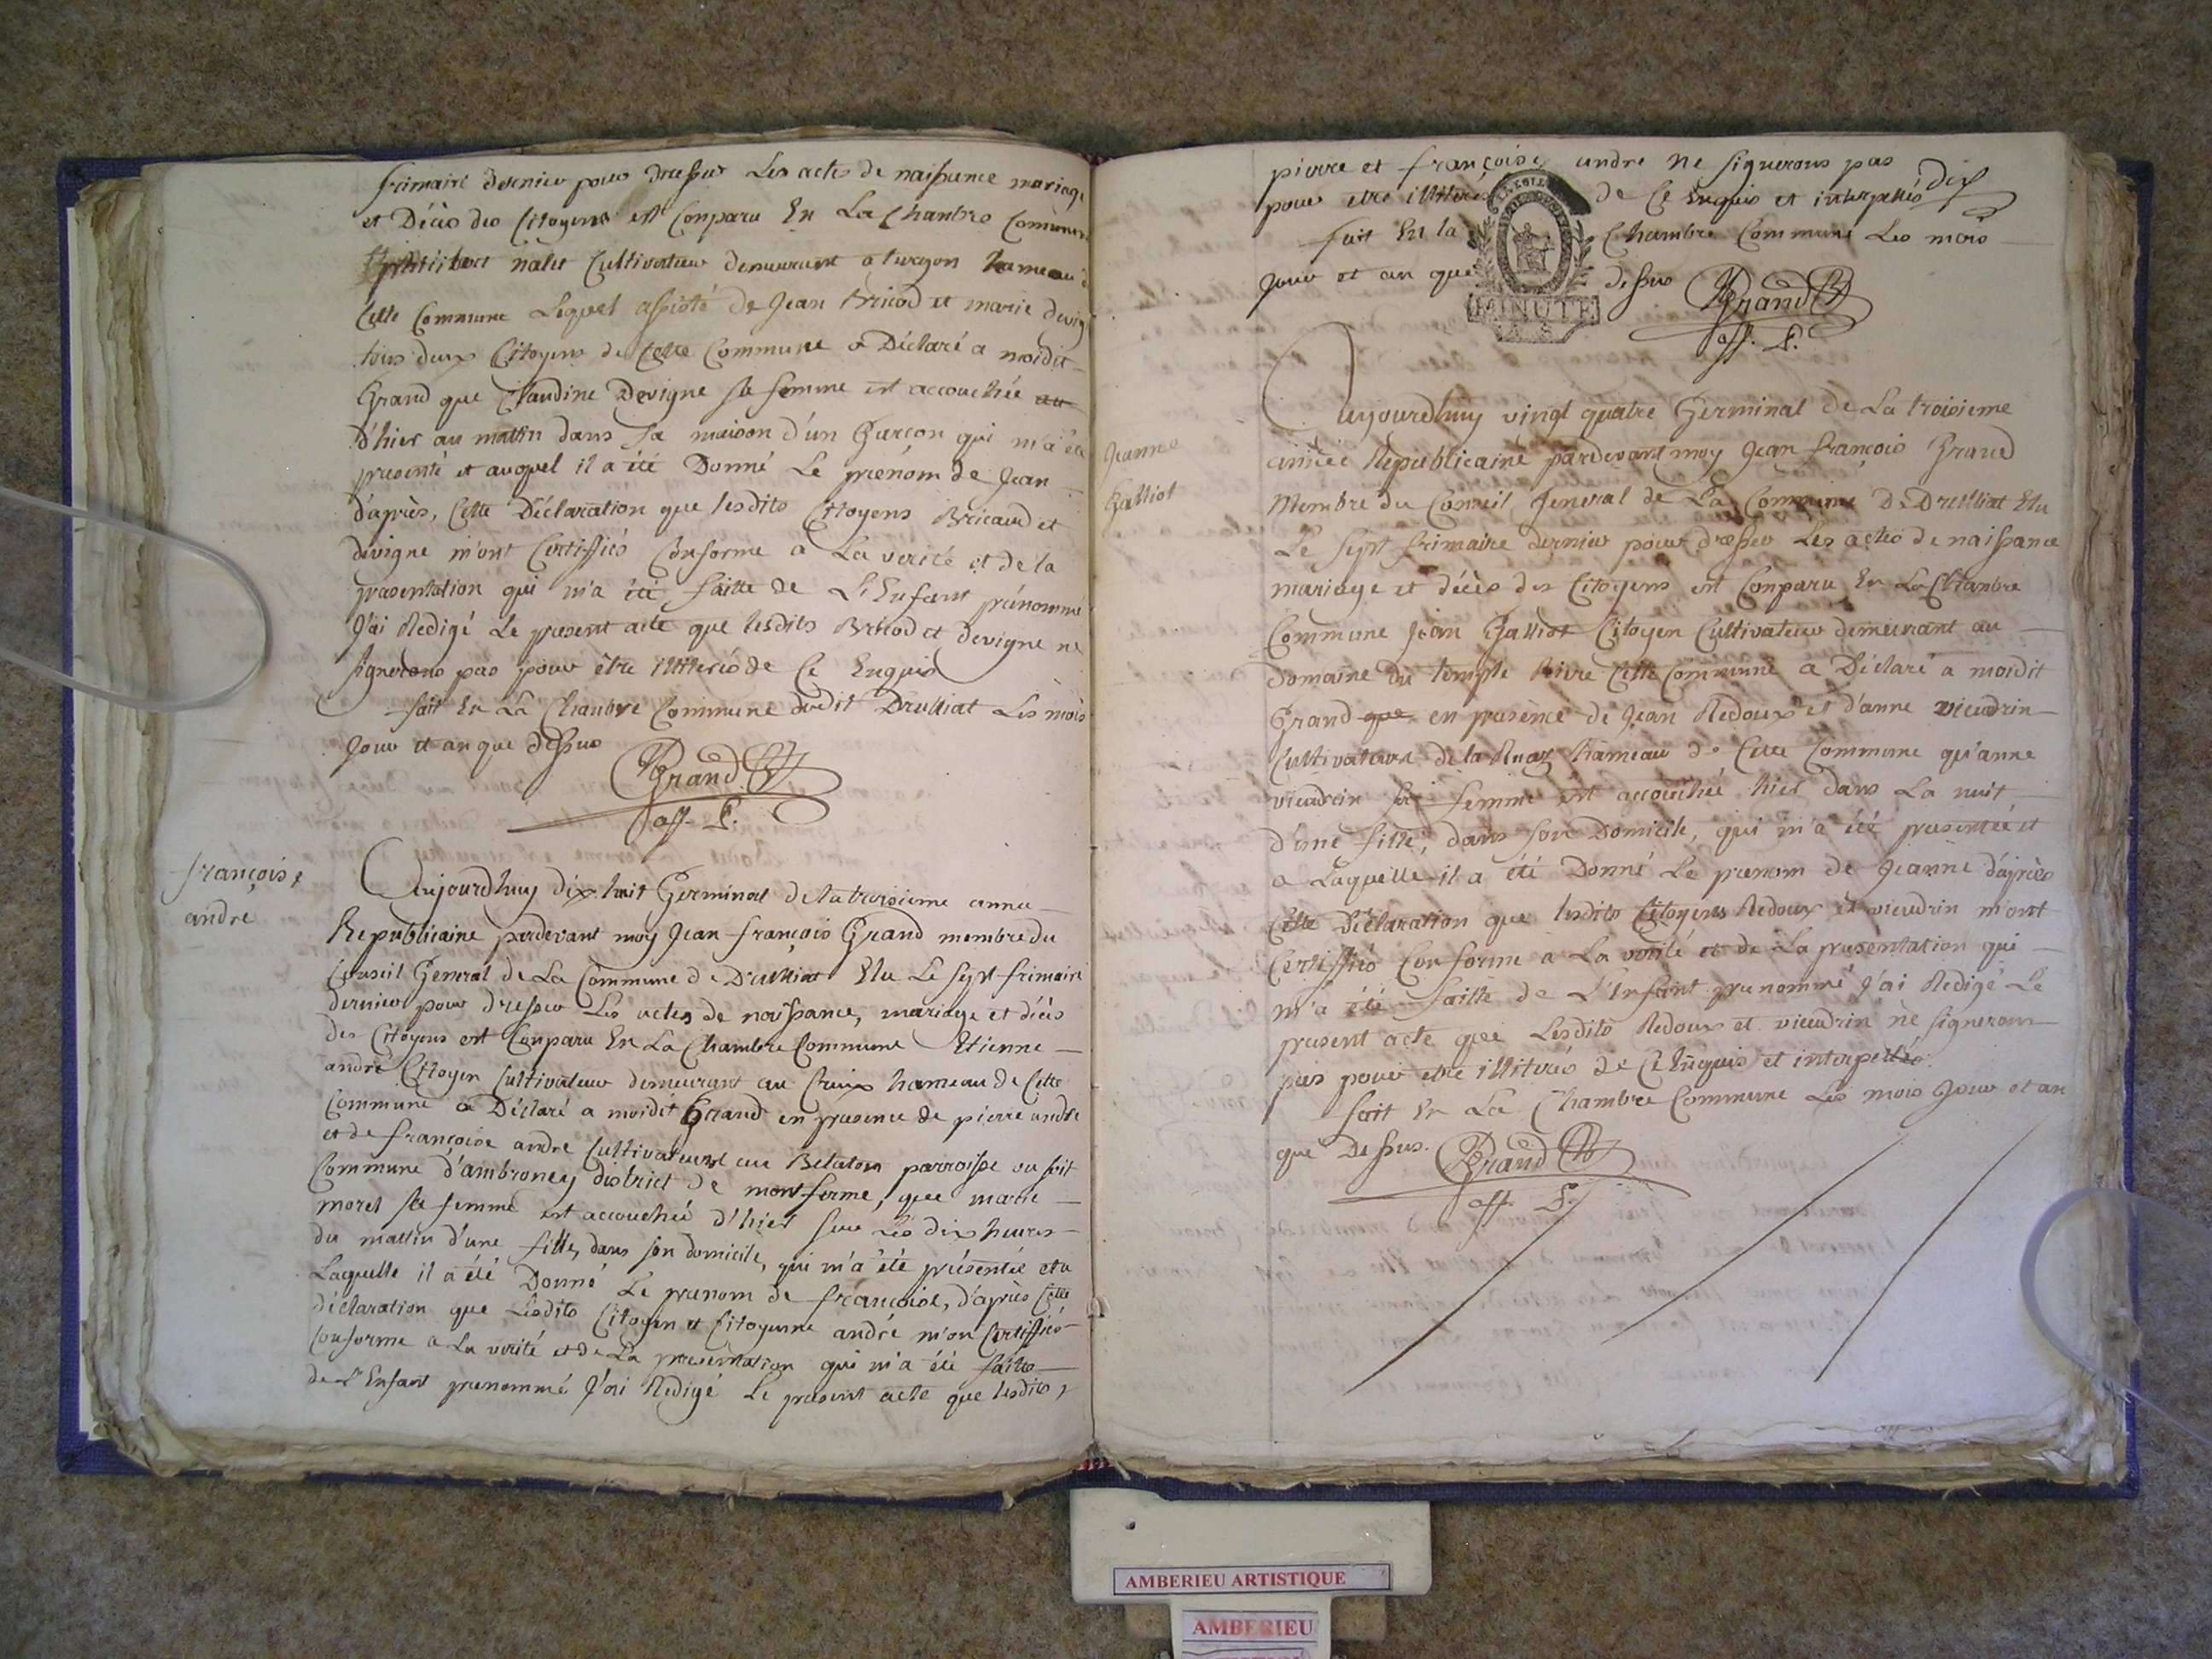 frimaire dernier pour dresser Les actes de naissance mariage
et Décès des Citoyens est Conparu En La Chambre Comune
nalet Cultivateur demeurant a turgon hameau
Cette Commune Lequel assisté de Jean Bricod et marie devig
tous deux Citoyens de Cette Commune a Déclaré a moidit
Grand que Claudine Devigne sa femme est accouchée
D'hier au mattin dans sa maison d'un Garçon qui m'a été
presenté et auquel il a été Donné Le prénom de Jean
d'après, Cette Déclaration que lesdits Citoyens Bricaud et
devigne m'ont Certiffiés Conforme a La verité et de la
presentation qui m'a été faitte de L'Enfant prénommé
J'ai Redigé Le present acte que lesdits Bricod et devigne ne
signerons pas pour être illiterés de Ce Enquis
fait En La Chambre Commune dudit Druilliat Les mois
Jour et an que dessus
Grand
off. P.
françoise
andre
Aujourdhuy dix huit Germinal de la troisieme année
Republicaine pardevant moy Jean françois Grand membre du
Conseil General de La Commune de Druilliat Elu Le sept frimaire
dernier pour dresser Les actes de naissance, mariage et décès
des Citoyens est Conparu En La Chambre Commune Etienne
andré Citoyen Cultivateur demeurant au Cruix hameau de Cette
Commune a Déclaré a moidit Grand en presence de pierre andre
et de françoise andre Cultivateurs au Belaton parroisse ou soit
Commune d'ambroney district de montferme, que marie
morel sa femme est accouchée d'hier sur Les dix heures
du mattin d'une fille, dans son domicile, qui m'a été présentée et a
Laquelle il a été Donné Le prenom de françoise, d'après Cette
déclaration que Lesdits Citoyen et Citoyenne andré m'on Certiffiés
Conforme a La verité et de La presentation qui m'a été faitte
de L'Enfant prenommé J'ai Redigé Le present acte que lesdits
pierre et françoise andre ne signerons pas
pour etre illiterés de Ce Enquis et interpellés dix
fait En la Chambre Commune Les mois
Jour et an que dessus
MINUTE
Grand
off. P.
Jeanne
Galliot
Aujourdhuy vingt quatre Germinal de La troisieme
année Republicaine pardevant moy Jean françois Grand
Membre du Conseil General de La Commune de Druilliat Elu
Le sept frimaire dernier pour dresser Les actes de naissance
mariage et décès des Citoyens est Conparu En La Chambre
Commune Jean Galliot Citoyen Cultivateur demeurant au
Domaine du temple Rière Cette Commune a Déclaré a moidit
Grand que en presence de Jean Redoux et d'anne vieudrin
Cultivateurs de la Ruaz hameau de Cette Commune qu'anne
vieudrin sa femme est accouchée hier dans La nuit
d'une fille, dans son Domicile, qui m'a été presentée et
a Laquelle il a été Donné Le prenom de Jeanne d'après
Cette Déclaration que lesdits Citoyens Redoux et vieudrin m'ont
Certiffiés Conforme a La verité et de La presentation qui
m'a été faitte de L'Enfant prenommé J'ai Redigé Le
present acte que Lesdits Redoux et vieudrin ne signerons
pas pour etre illiterés de Ce Enquis et interpellés
fait En La Chambre Commune Les mois Jour et an
que Dessus. Grand
off. P.
AMBERIEU ARTISTIQUE
AMBERIEU